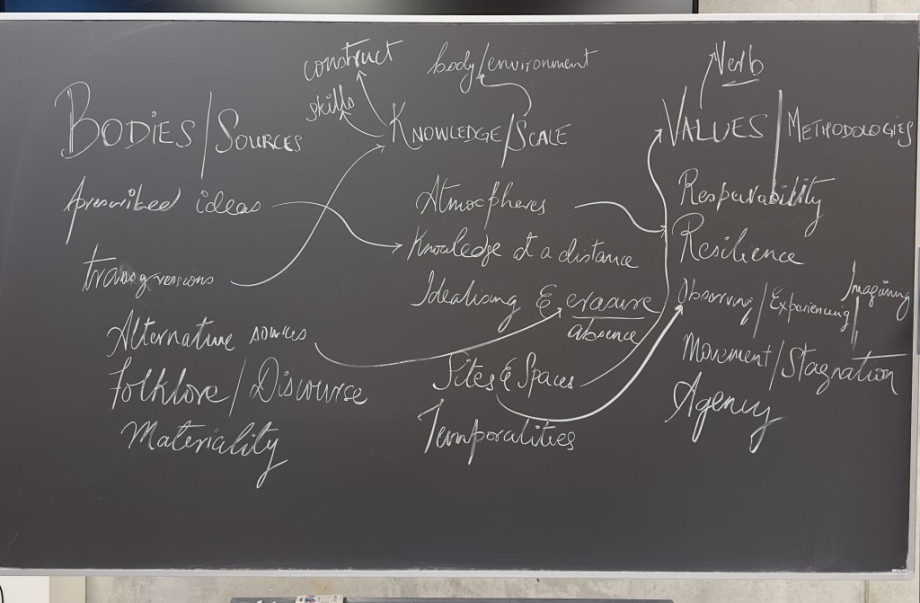 BODIES/SOURCES
prescribed ideas
transgressions
Alternative sources
Folklore/Discourse
Materiality
construct
skills
body/environment
KNOWLEDGE/SCALE
Atmospheres
Knowledge at a distance
Idealising & erasure
absence
Sites & Spaces
Temporalities
Verb
VALUES/METHODOLOGIES
Resilience
Observing/Experiencing/Imagining
Movement/Stagnation
Agency